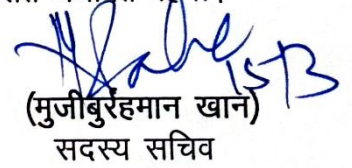 15/3
(मुजीबुर्रहमान खान)
सदस्य सचिव